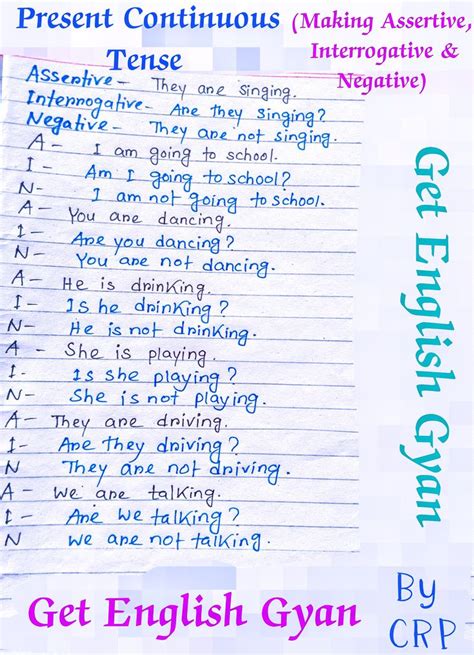 Present Continuous (Making Assertive,
Tense Interrogative &
Negative)
Assertive – They are singing.
Interrogative – Are they singing?
Negative – They are not singing.
A – I am going to school.
I – Am I going to school?
N – I am not going to school.
A – You are dancing.
I – Are you dancing?
N – You are not dancing.
A – He is drinking.
I – Is he drinking?
N – He is not drinking.
A – She is playing.
I – Is she playing?
N – She is not playing.
A – They are driving.
I – Are they driving?
N They are not driving.
A – We are talking.
I – Are we talking?
N We are not talking.
Get English Gyan
Get English Gyan
By
CRP